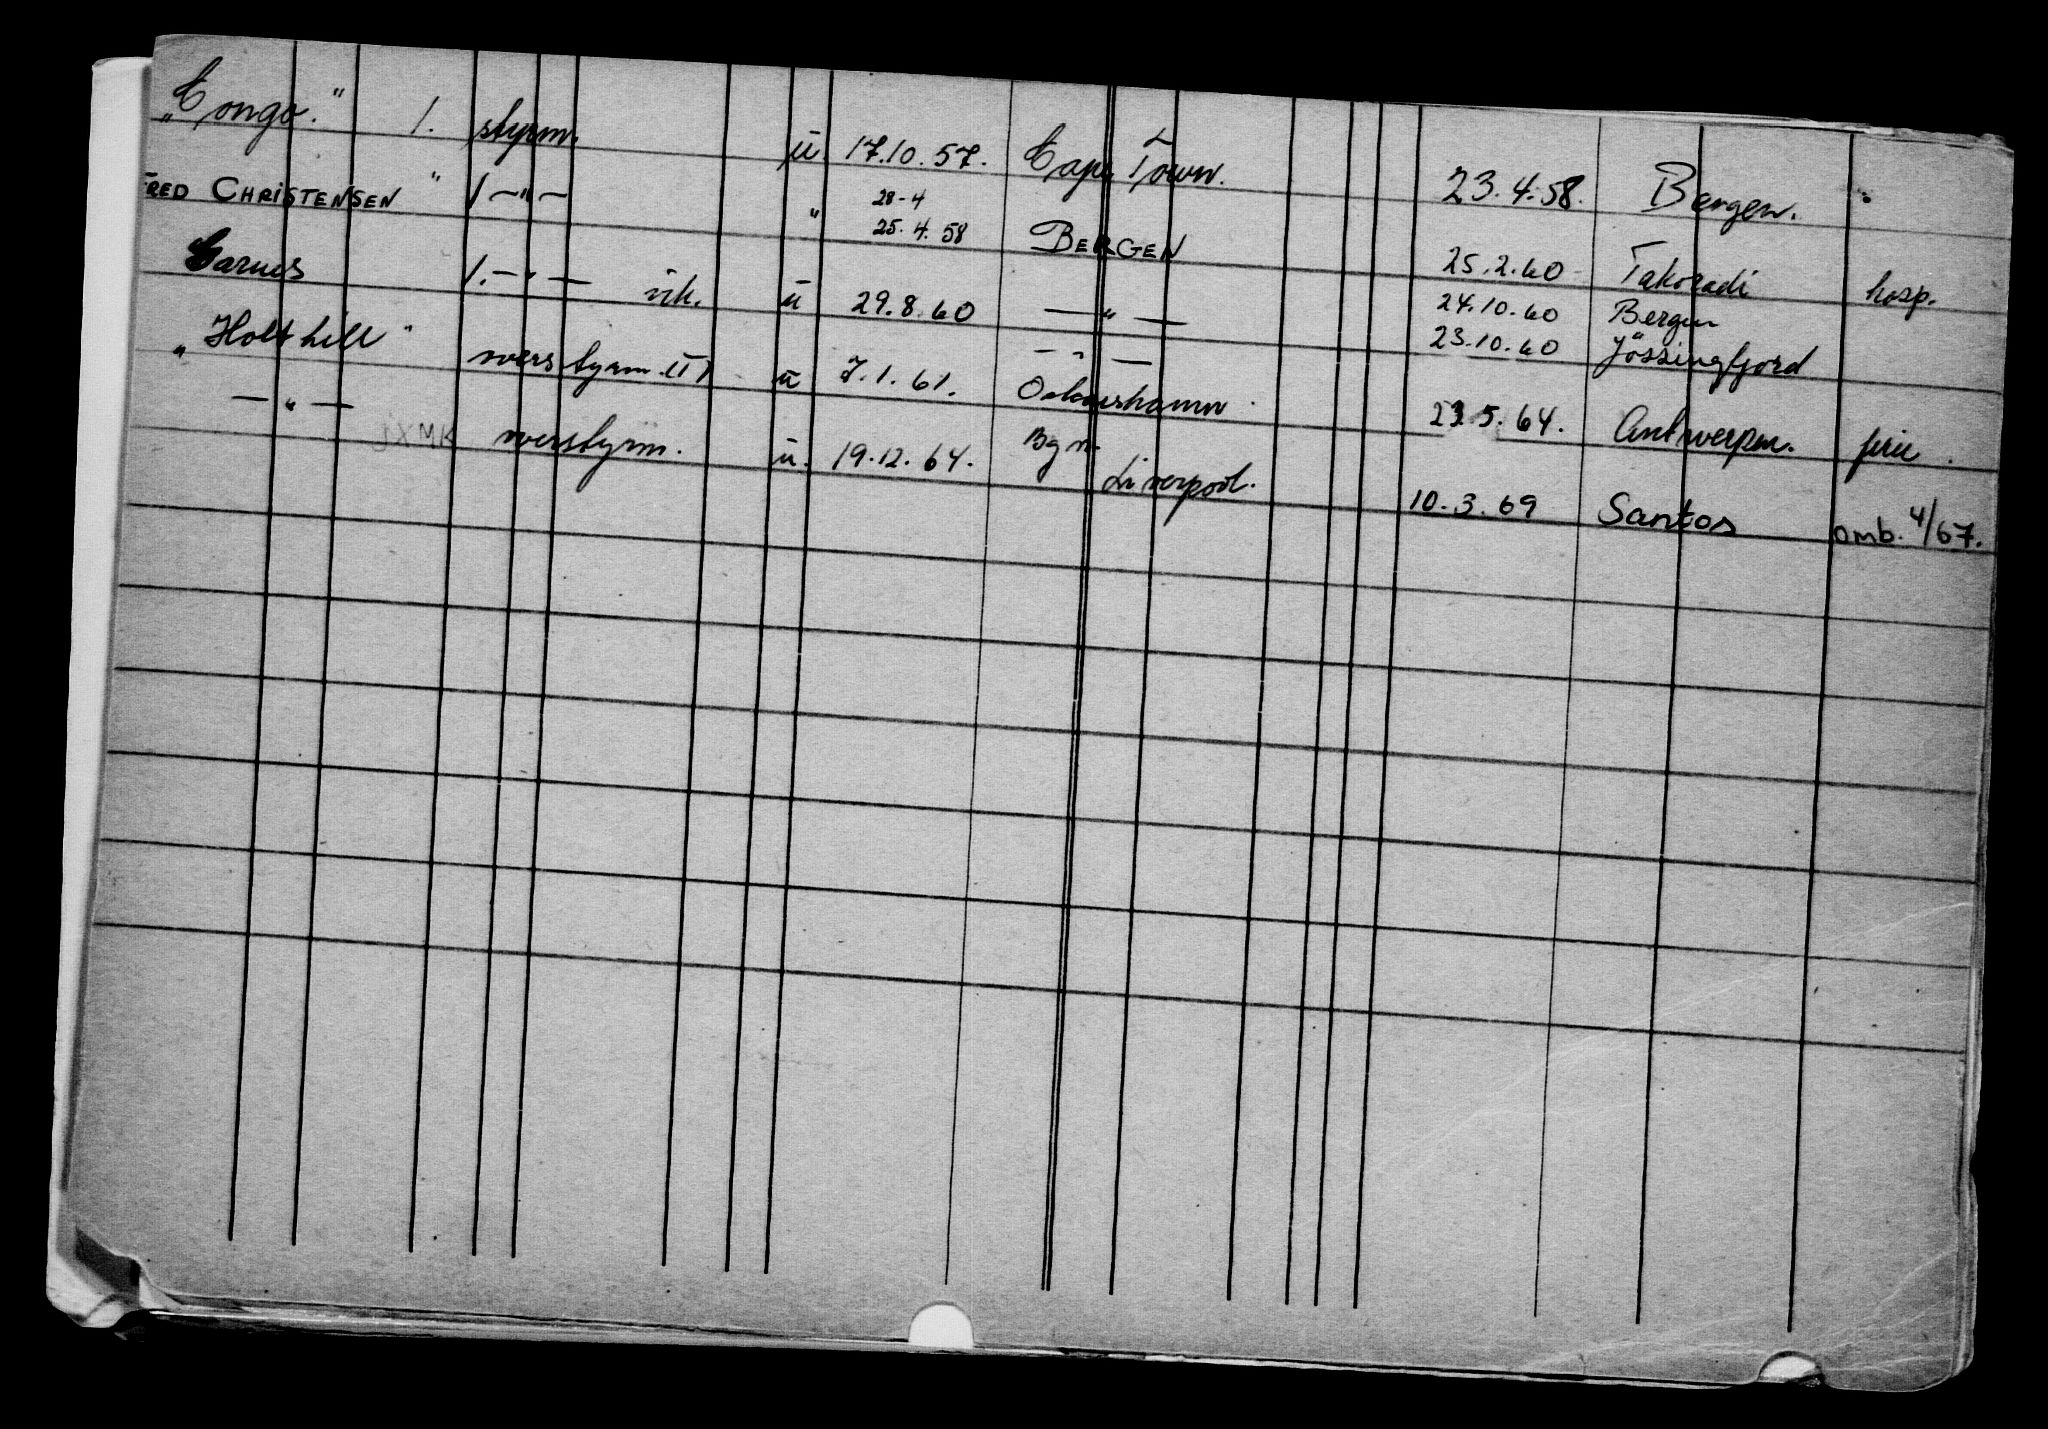 "Congo." 1. styrm. u. 17.10.57. Cape Town. 23.4.58. Bergen. "
FRED CHRISTENSEN " 1 —"— " 28-4 25.4.58 BERGEN 25.2.60 Takoradi hosp.
Garnes 1. —"— vik. u 29.8.60 —"— 24.10.60 Bergen
—"— 23.10.60 Jössingfjord
"Holthill" overstyrm. (I) u 7.1.61. Oskarshamn 5.64. Antwerpen. ferie.
—"— JXMK overstyrm. u. 19.12.64. Bgn. Liverpool. 10.3.69 Santos omb. 4/67.